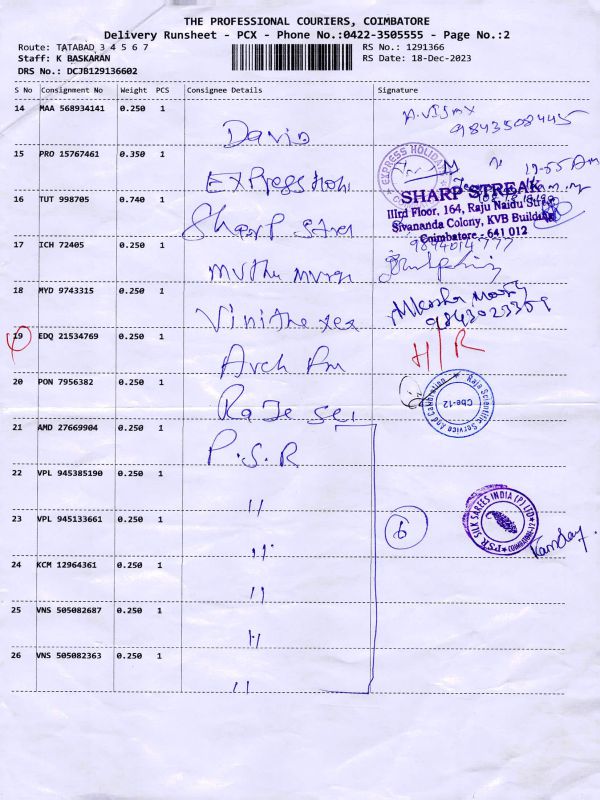 THE PROFESSIONAL COURIERS, COIMBATORE
Delivery Runsheet - PCX - Phone No.:0422-3505555 - Page No.:2
Route: TATABAD 3 4 5 6 7
RS No.: 1291366
Staff: K BASKARAN
RS Date: 18-Dec-2023
DRS No.: DCJB129136602
S No Consignment No Weight PCS Consignee Details Signature
14 MAA 568934141 0.250 1 David
A.VIJAY
9843508445
15 PRO 15767461 0.350 1
EXPRESS HOLIDAY
16 TUT 998705 0.740 1 Sharp
SHARP STREAK
IIIrd Floor, 164, Raju Naidu Street
Sivananda Colony, KVB Building
Coimbatore - 641 012
17 ICH 72405 0.250 1 muthu
18 MYD 9743315 0.250 1
9843023359
19 EDQ 21534769 0.250 1 Arch
H/R
20 PON 7956382 0.250 1
Raja Scientific Service And Calibration
Cbe-12
21 AMD 27669904 0.250 1 P.S.R
22 VPL 945385190 0.250 1 11
23 VPL 945133661 0.250 1 11
6
PSR SILK SAREES INDIA (P) LTD
24 KCM 12964361 0.250 1 11
25 VNS 505082687 0.250 1 11
26 VNS 505082363 0.250 1 11